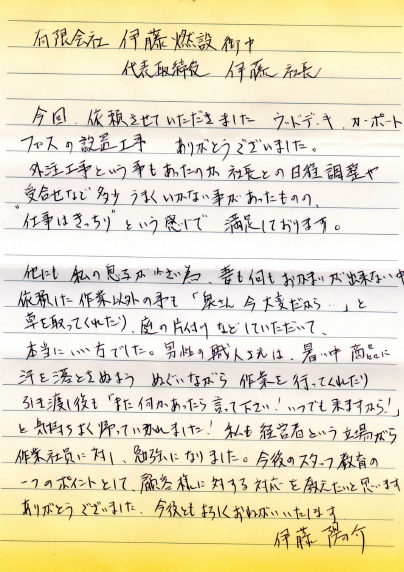 有限会社 伊藤燃設 御中
代表取締役 伊藤 社長
今回、依頼させていただきました ウッドデッキ、カーポート
フェンスの設置工事 ありがとうございました。
外注工事という事もあったのか 社長との日程調整や
受合せなど 多少うまくいかない事があったものの、
"仕事はきっちり"という感じで 満足しております。
他にも 私の息子が小さい為、妻も何もおかまいが出来ない中
依頼した作業以外の事も「奥さん 今大変だから…」と
草を取ってくれたり、庭の片付けなどしていただいて、
本当にいい方でした。男性の職人さんは、暑い中 商品に
汗を落とさぬよう ぬぐいながら 作業を行ってくれたり
引き渡し後も「また何かあったら言って下さい!いつでも来ますから!」
と気持ちよく帰っていかれました!私も経営者という立場がら
作業社員に対し、勉強になりました。今後のスタッフ教育の
一つのポイントとして、顧客様に対する対応を教えたいと思います
ありがとうございました。今後ともよろしくおねがいいたします
伊藤 陽介